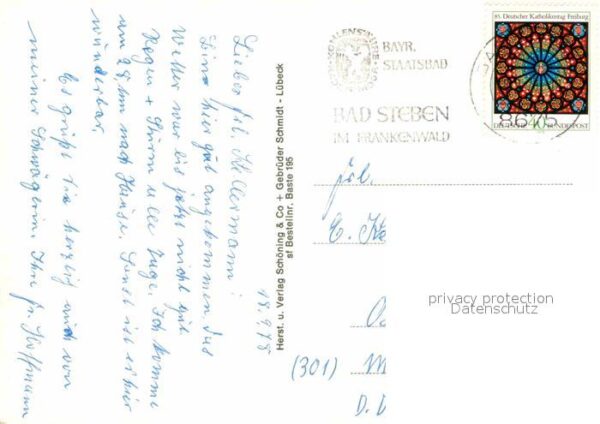 18.9.78
Liebes Frl. Kellermann!
Sind hier gut angekommen das
Wetter war bis jetzt nicht gut
Regen + Sturm alle Tage. Ich komme
am 28 nach Hause. Sonst ist es hier
wunderbar.
Es grüßt Sie herzlich auch von
meiner Schwägerin. Ihre Fr. Hoffmann
Herst. u. Verlag Schöning & Co + Gebrüder Schmidt - Lübeck
sf Bestellnr. Baste 195
BAYR.
STAATSBAD
BAD STEBEN
IM FRANKENWALD
85. Deutscher Katholikentag Freiburg
DEUTSCHE BUNDESPOST
40
Frl.
E. Ke
(301) M
privacy protection
Datenschutz